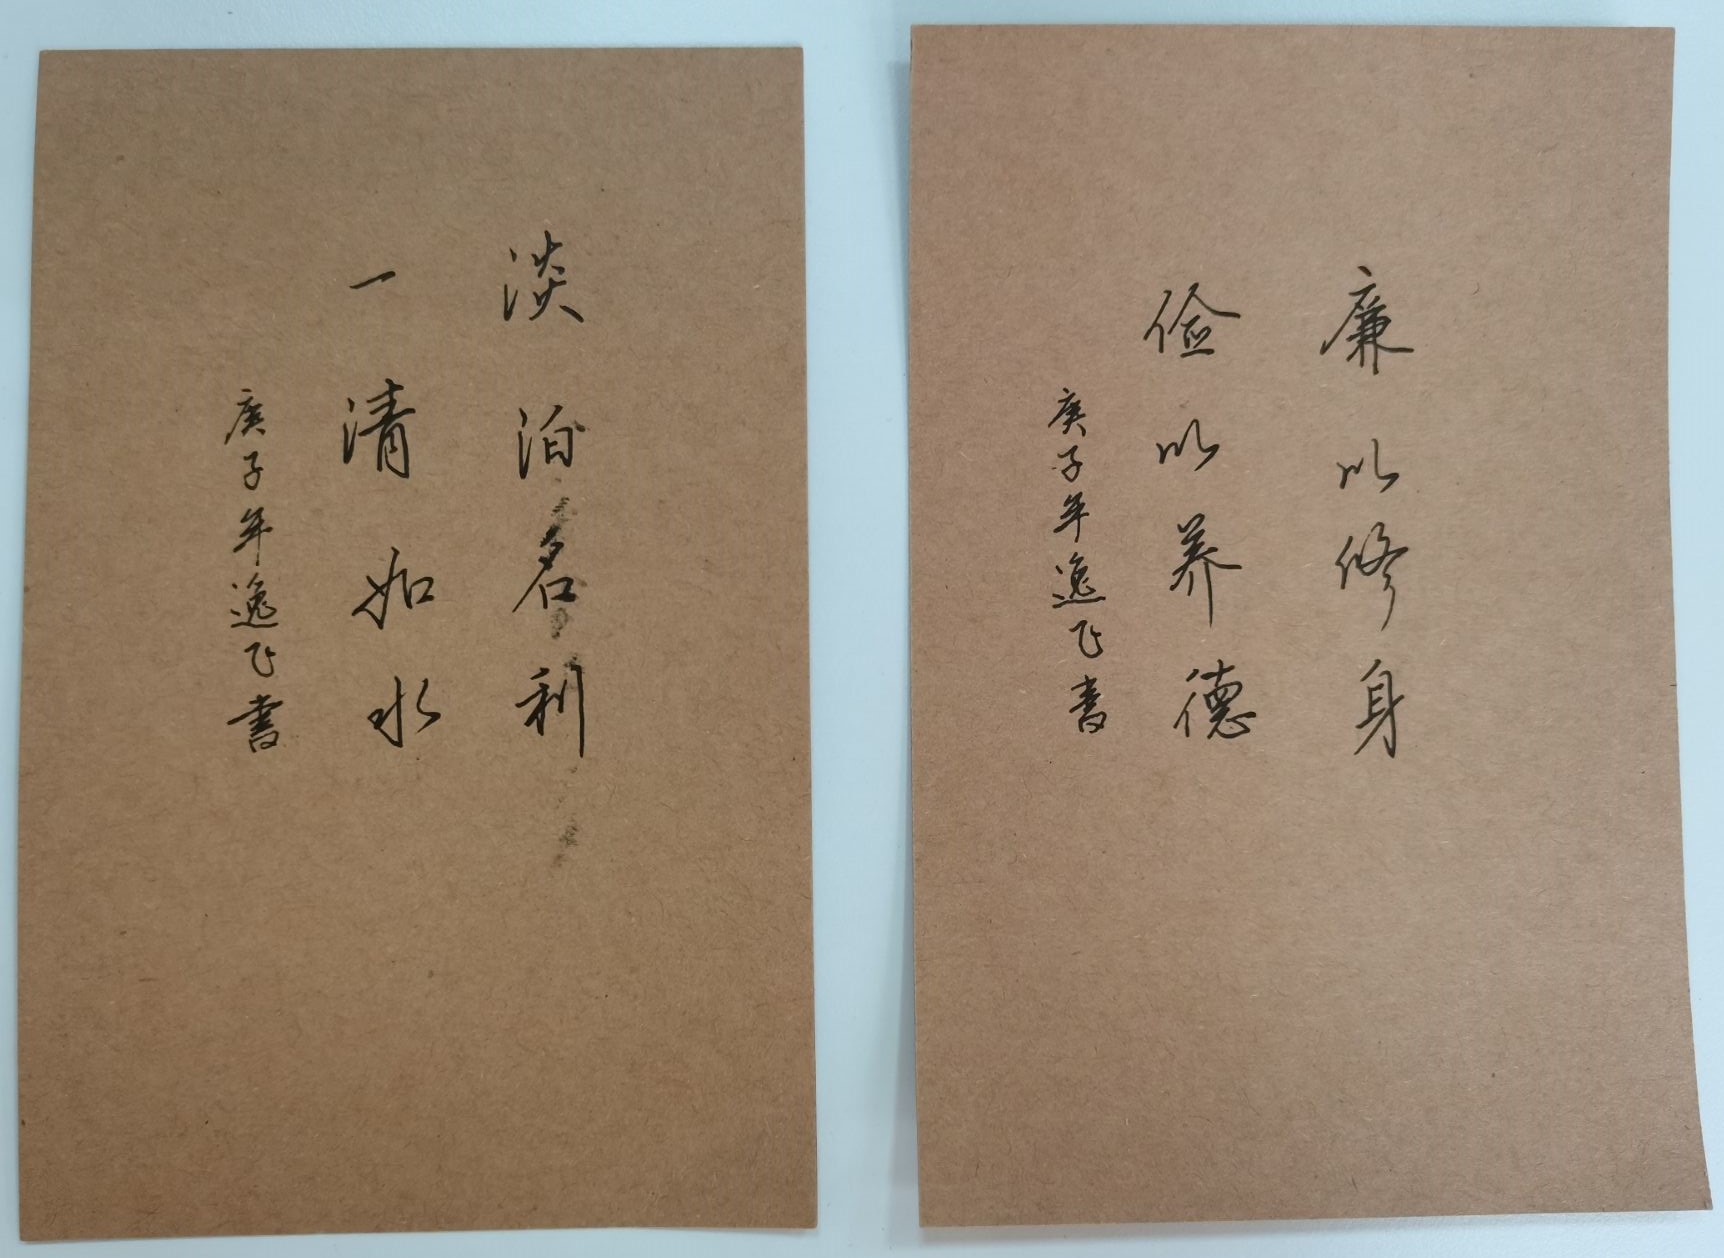 淡泊名利
一清如水
庚子年逸飞書
廉以修身
俭以养德
庚子年逸飞書